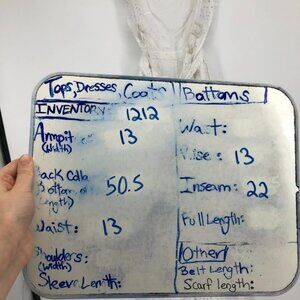 Tops, Dresses, Coats
INVENTORY 1212
Armpit 13
(width)
Back Colla
Bottom of 50.5
Length)
Waist: 13
Shoulders:
(width)
Sleeve Length:
Bottoms
Waist:
Rise: 13
Inseam: 22
Full Length:
Other
Belt Length:
Scarf length: